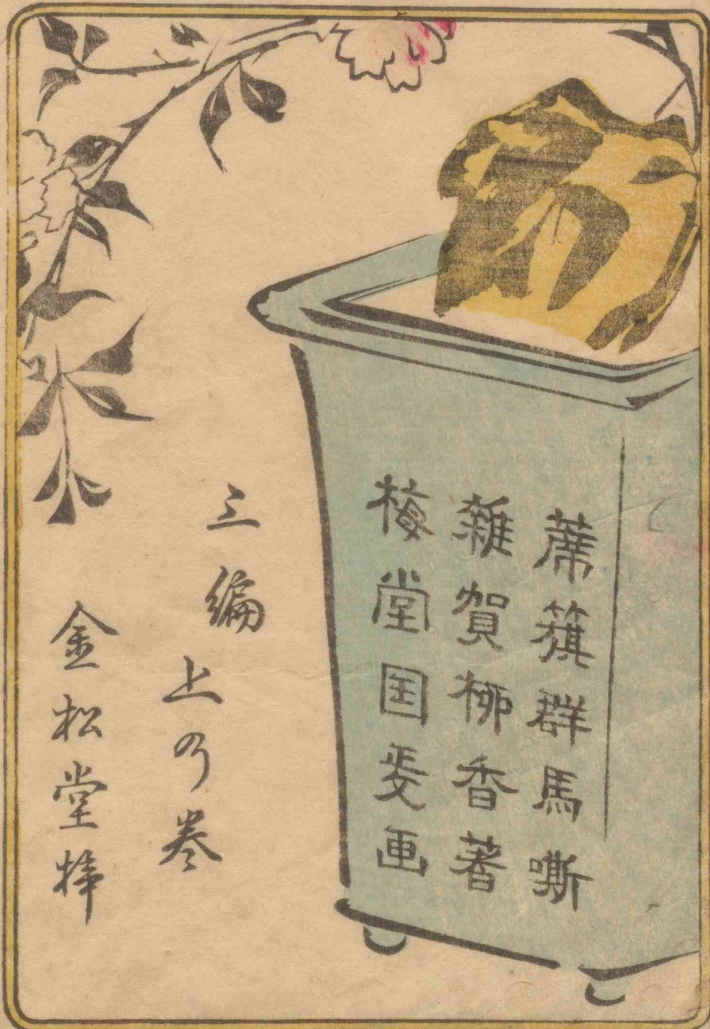 蓆簱群馬嘶
雜賀柳香著
梅堂国政画
三編上の巻
金松堂梓